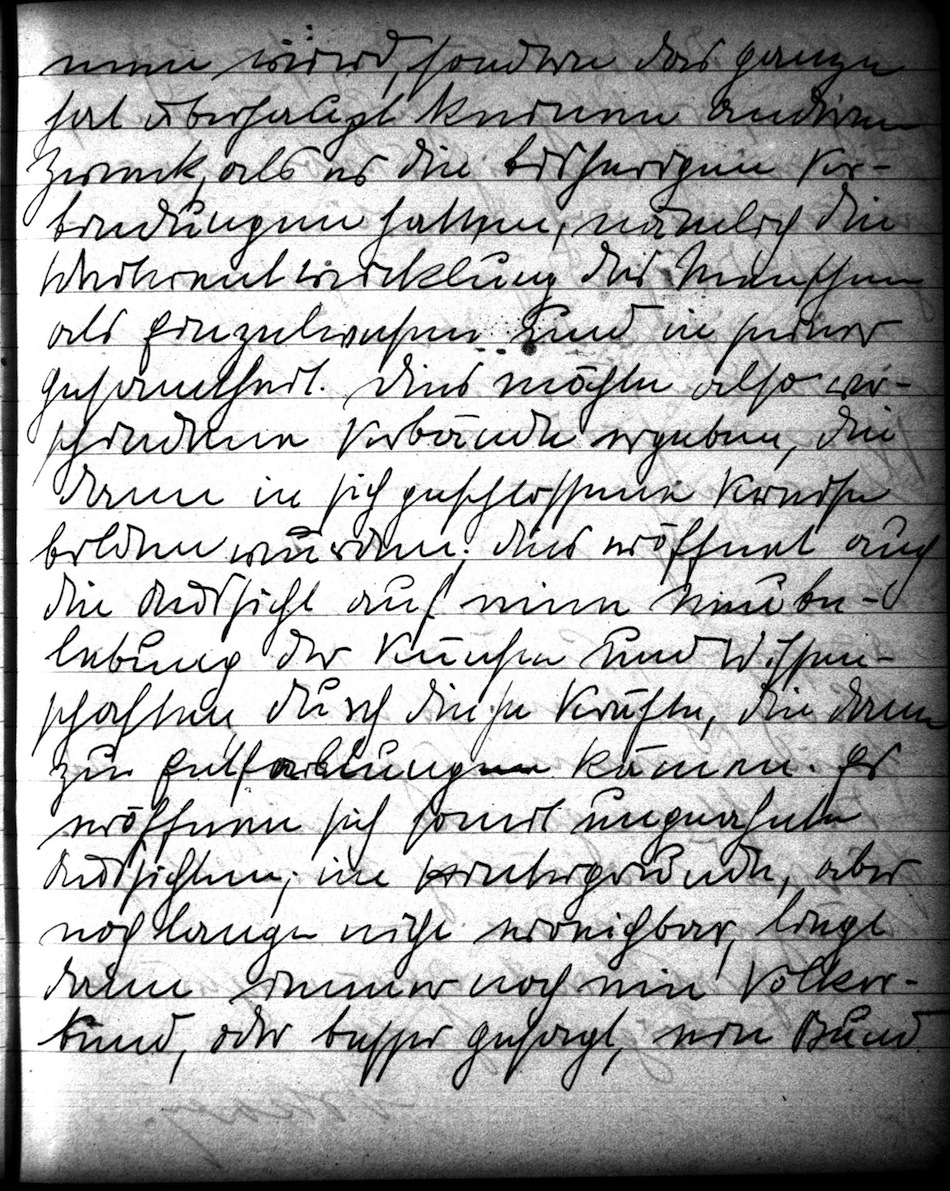 nun wird, sondern das ganze
hat überhaupt keinen anderen
Zweck, als es die bisherigen Ver-
bindungen hatten, nämlich die
Weiterentwicklung des Menschen
als Einzelwesen und in seiner
Gesamtheit. Dies möchte also ver-
schiedene Verbände ergeben, die
dann in sich geschlossene Kreise
bilden würden. Dies eröffnet auch
die Aussicht auf eine Neube-
lebung der Künste und Wissen-
schaften durch diese Kräfte, die dann
zur Entfaltung kämen. Es
eröffnen sich somit ungeahnte
Aussichten; im Hintergrunde, aber
noch lange nicht erreichbar, liegt
dann immer noch ein Völker-
bund, oder besser gesagt, ein Bund